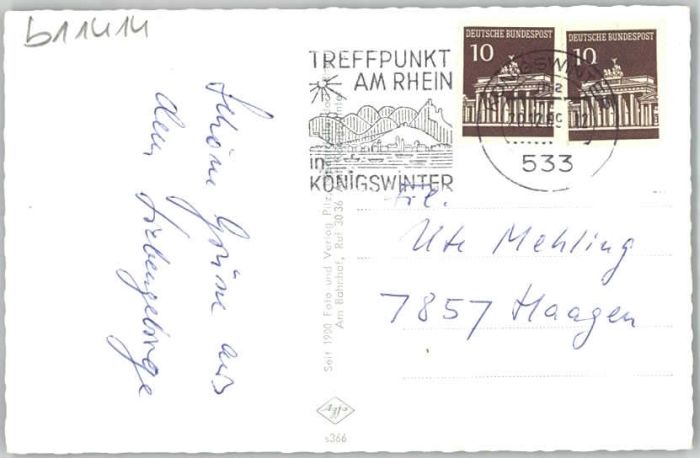 b11414
TREFFPUNKT
AM RHEIN
in
KÖNIGSWINTER
10 DEUTSCHE BUNDESPOST
10 DEUTSCHE BUNDESPOST
KÖNIGSWINTER
533
Schöne Grüße aus
dem Siebengebirge
Frl.
Ute Mehling
7857 Haagen
Seit 1900 Foto und Verlag
Am Bahnhof, Ruf 30 36
s366